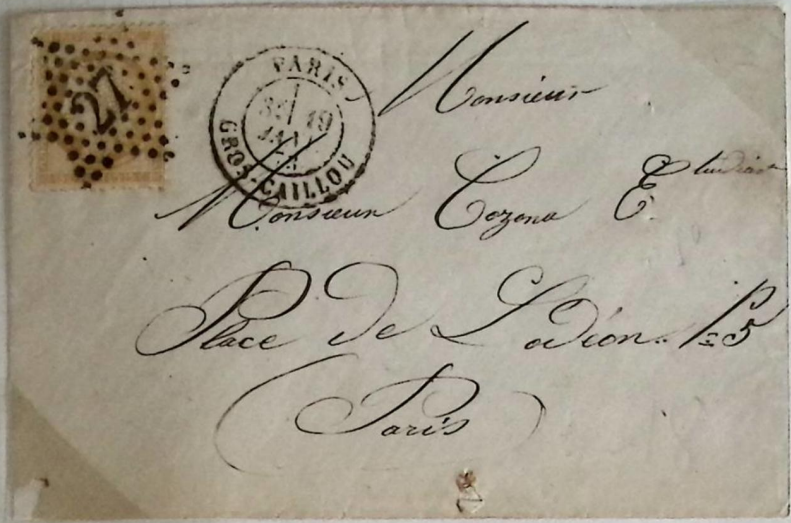 27
PARIS
3E/ 19
JANV.
GROS-CAILLOU
Monsieur
Monsieur Cozona Etudiant
Place de Lodéon. 5
(Paris)